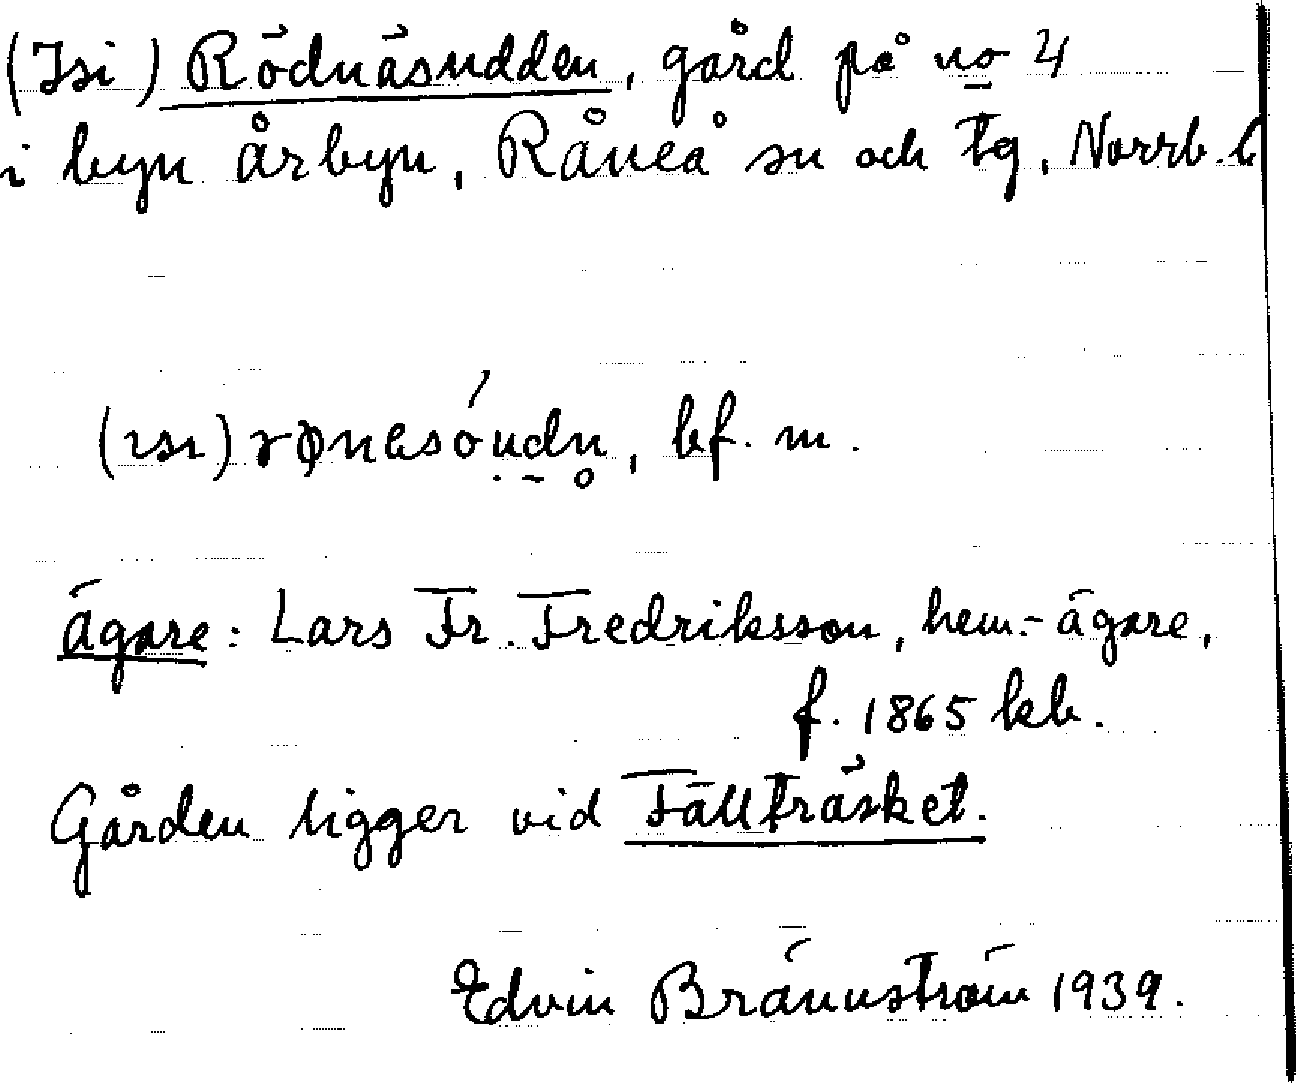 (Isi) Rödnäsudden, gård på no 4
i byn Årbyn, Råneå sn och tg, Norrb. l
(ısı) rønɛsóudn̥, bf. m.
ägare: Lars Fr. Fredriksson, hem.-ägare,
f. 1865 kb.
Gården ligger vid Fällträsket.
Edvin Brännström 1939.